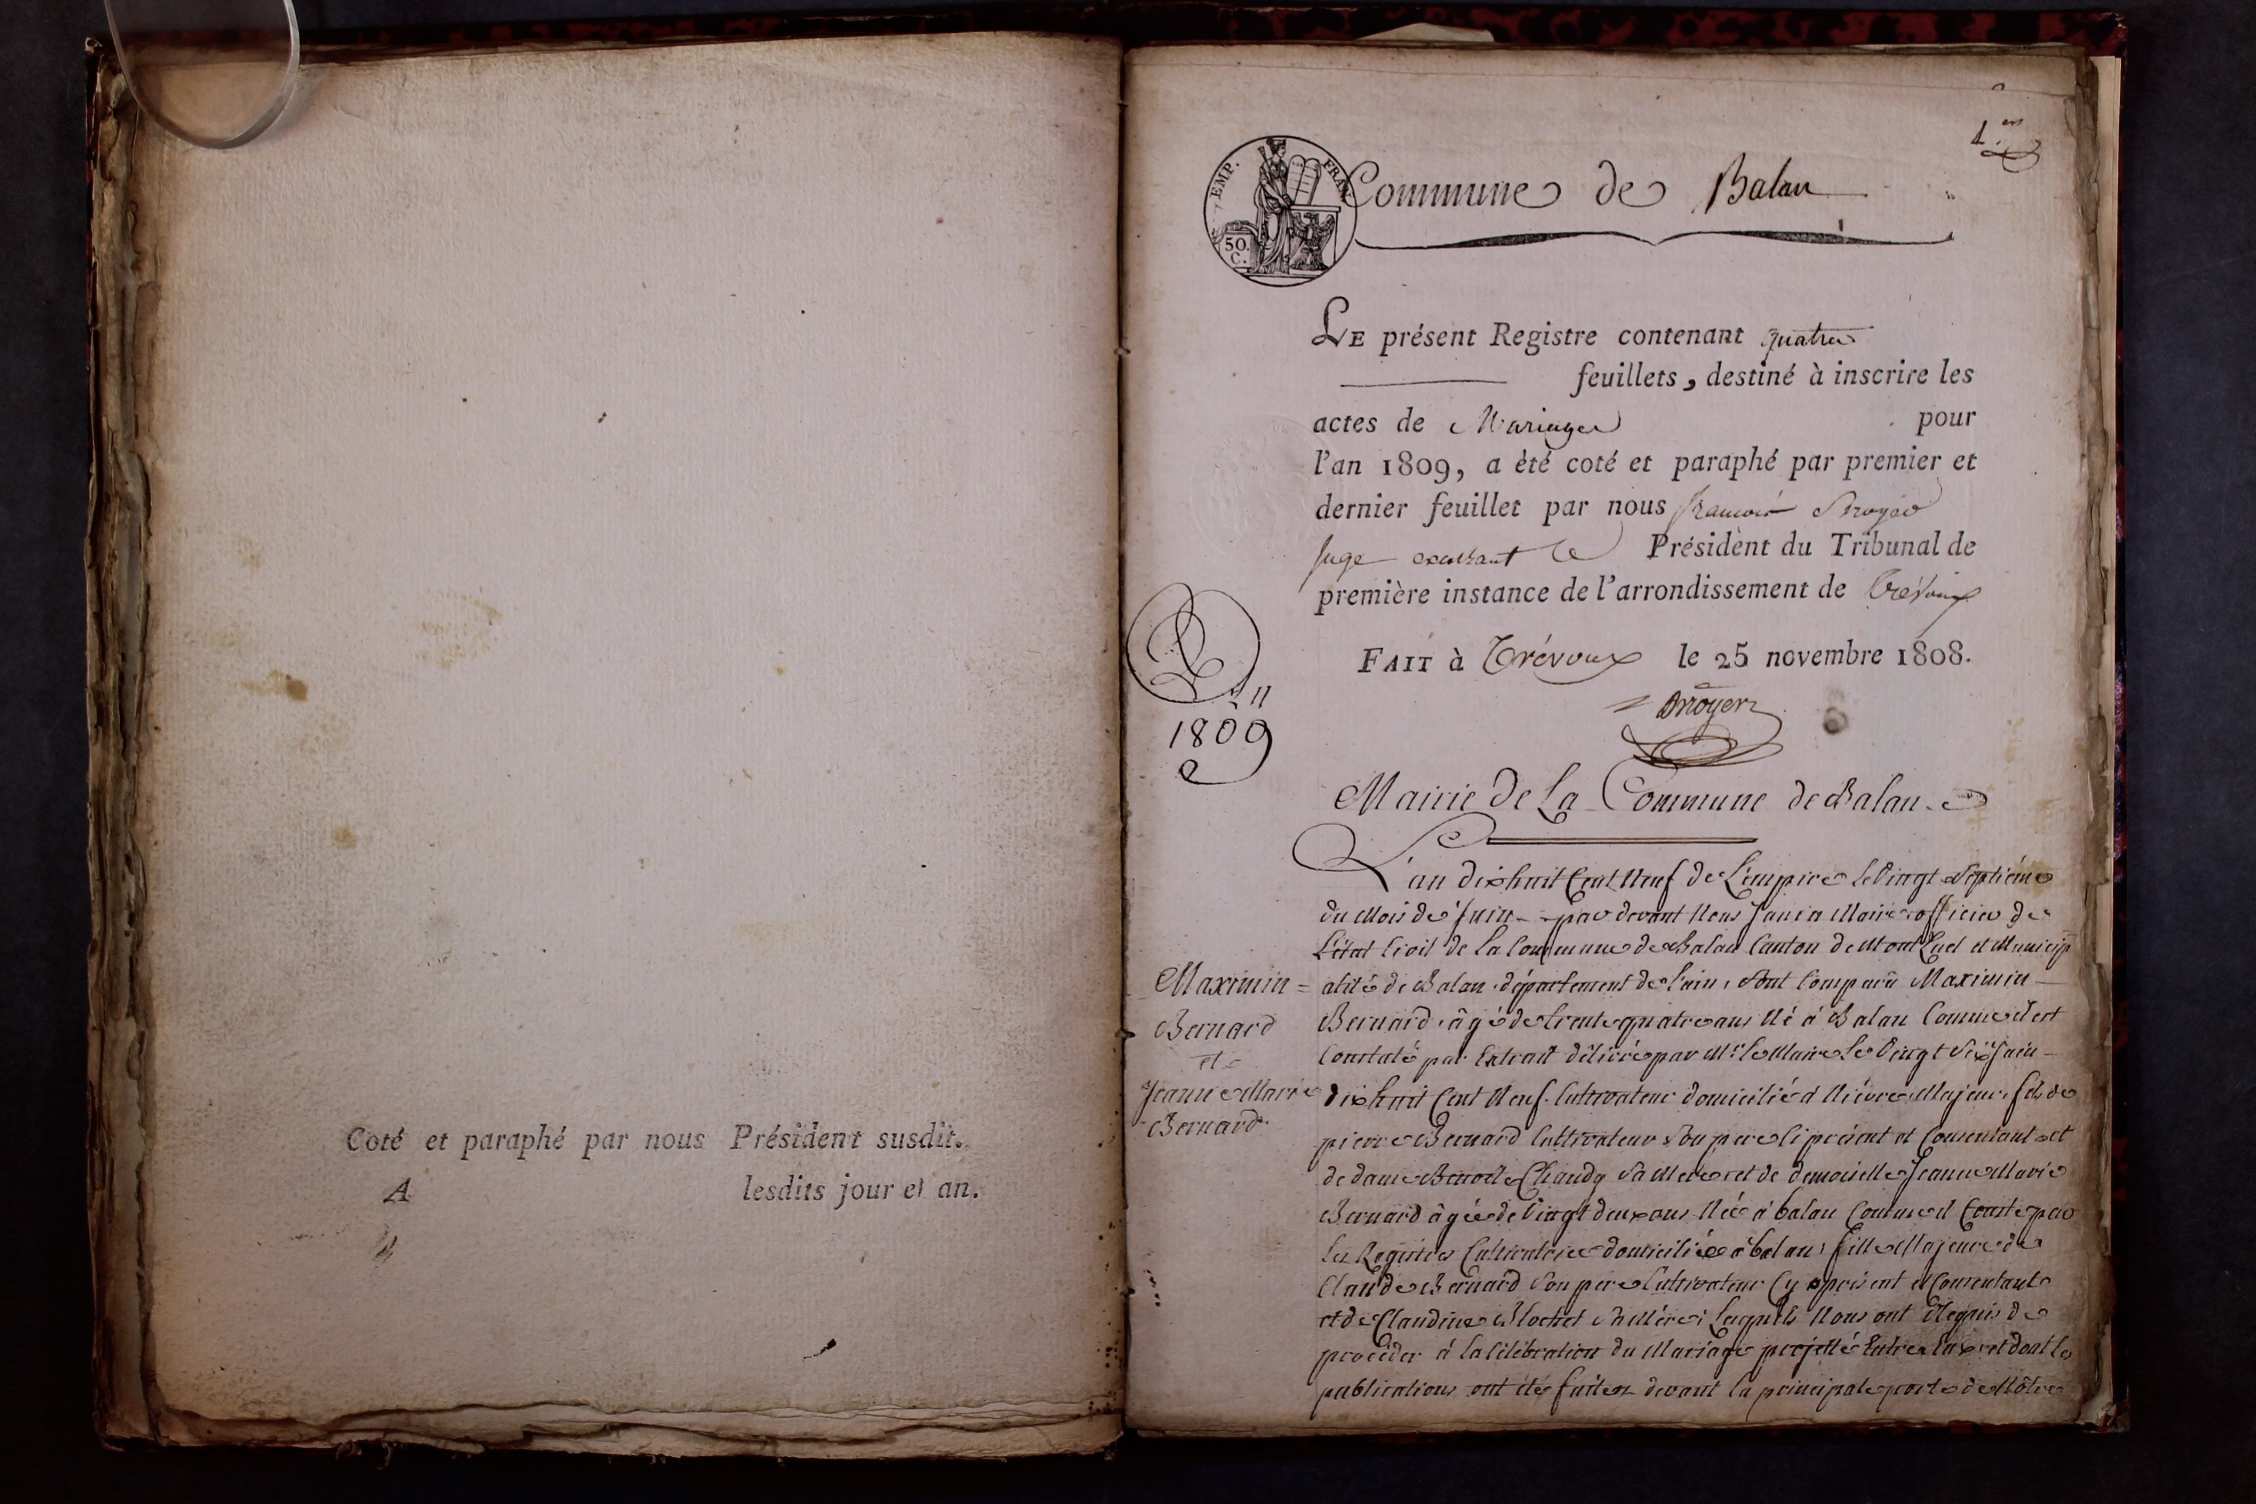 Coté et paraphé par nous Président susdit.
A lesdits jour et an.
1.er
EMP. FRAN.
50.
C.
Commune de Balan
LE présent Registre contenant quatre
feuillets, destiné à inscrire les
actes de Mariages pour
l'an 1809, a été coté et paraphé par premier et
dernier feuillet par nous françois
Juge exerçant Président du Tribunal de
première instance de l'arrondissement de Trévoux
FAIT à Trévoux le 25 novembre 1808.
1809
Mairie De La Commune de Balan
L'an dix huit Cent Neuf de L'empire le Vingt Septième
du Mois de Juin par devant Nous Maire officier de
L'état Civil de la Commune de Balan Canton de MontLuel et Municip
Maximin =
Bernard
et
Jeanne Marie
Bernard
alité de Balan département de l'ain, Sont Comparu Maximin
Bernard, âgé de trente quatre ans Né à Balan Comme il est
Constaté par Extrait délivré par Mr. le Maire le Vingt Six Juin
dix huit Cent Neuf. Cultivateur domicilié à Niévre Majeur, fils de
pierre Bernard Cultivateur Son pere Ci présent et Consentant et
de dame Benoite Sa Mere et de demoiselle Jeanne Marie
Bernard âgée de Vingt deux ans Née à balan Comme il Conste par
les Registres Cultivatrice domiciliée à balan, fille Majeure de
Claude Bernard Son pere Cultivateur Cy présent et Consentant
et de Claudine Blochet Sa Mére; Lesquels Nous ont Requis de
procéder à la Célébration du Mariage projetté Entre Eux et dont les
publications ont été faites devant la principale porte de Nôtre